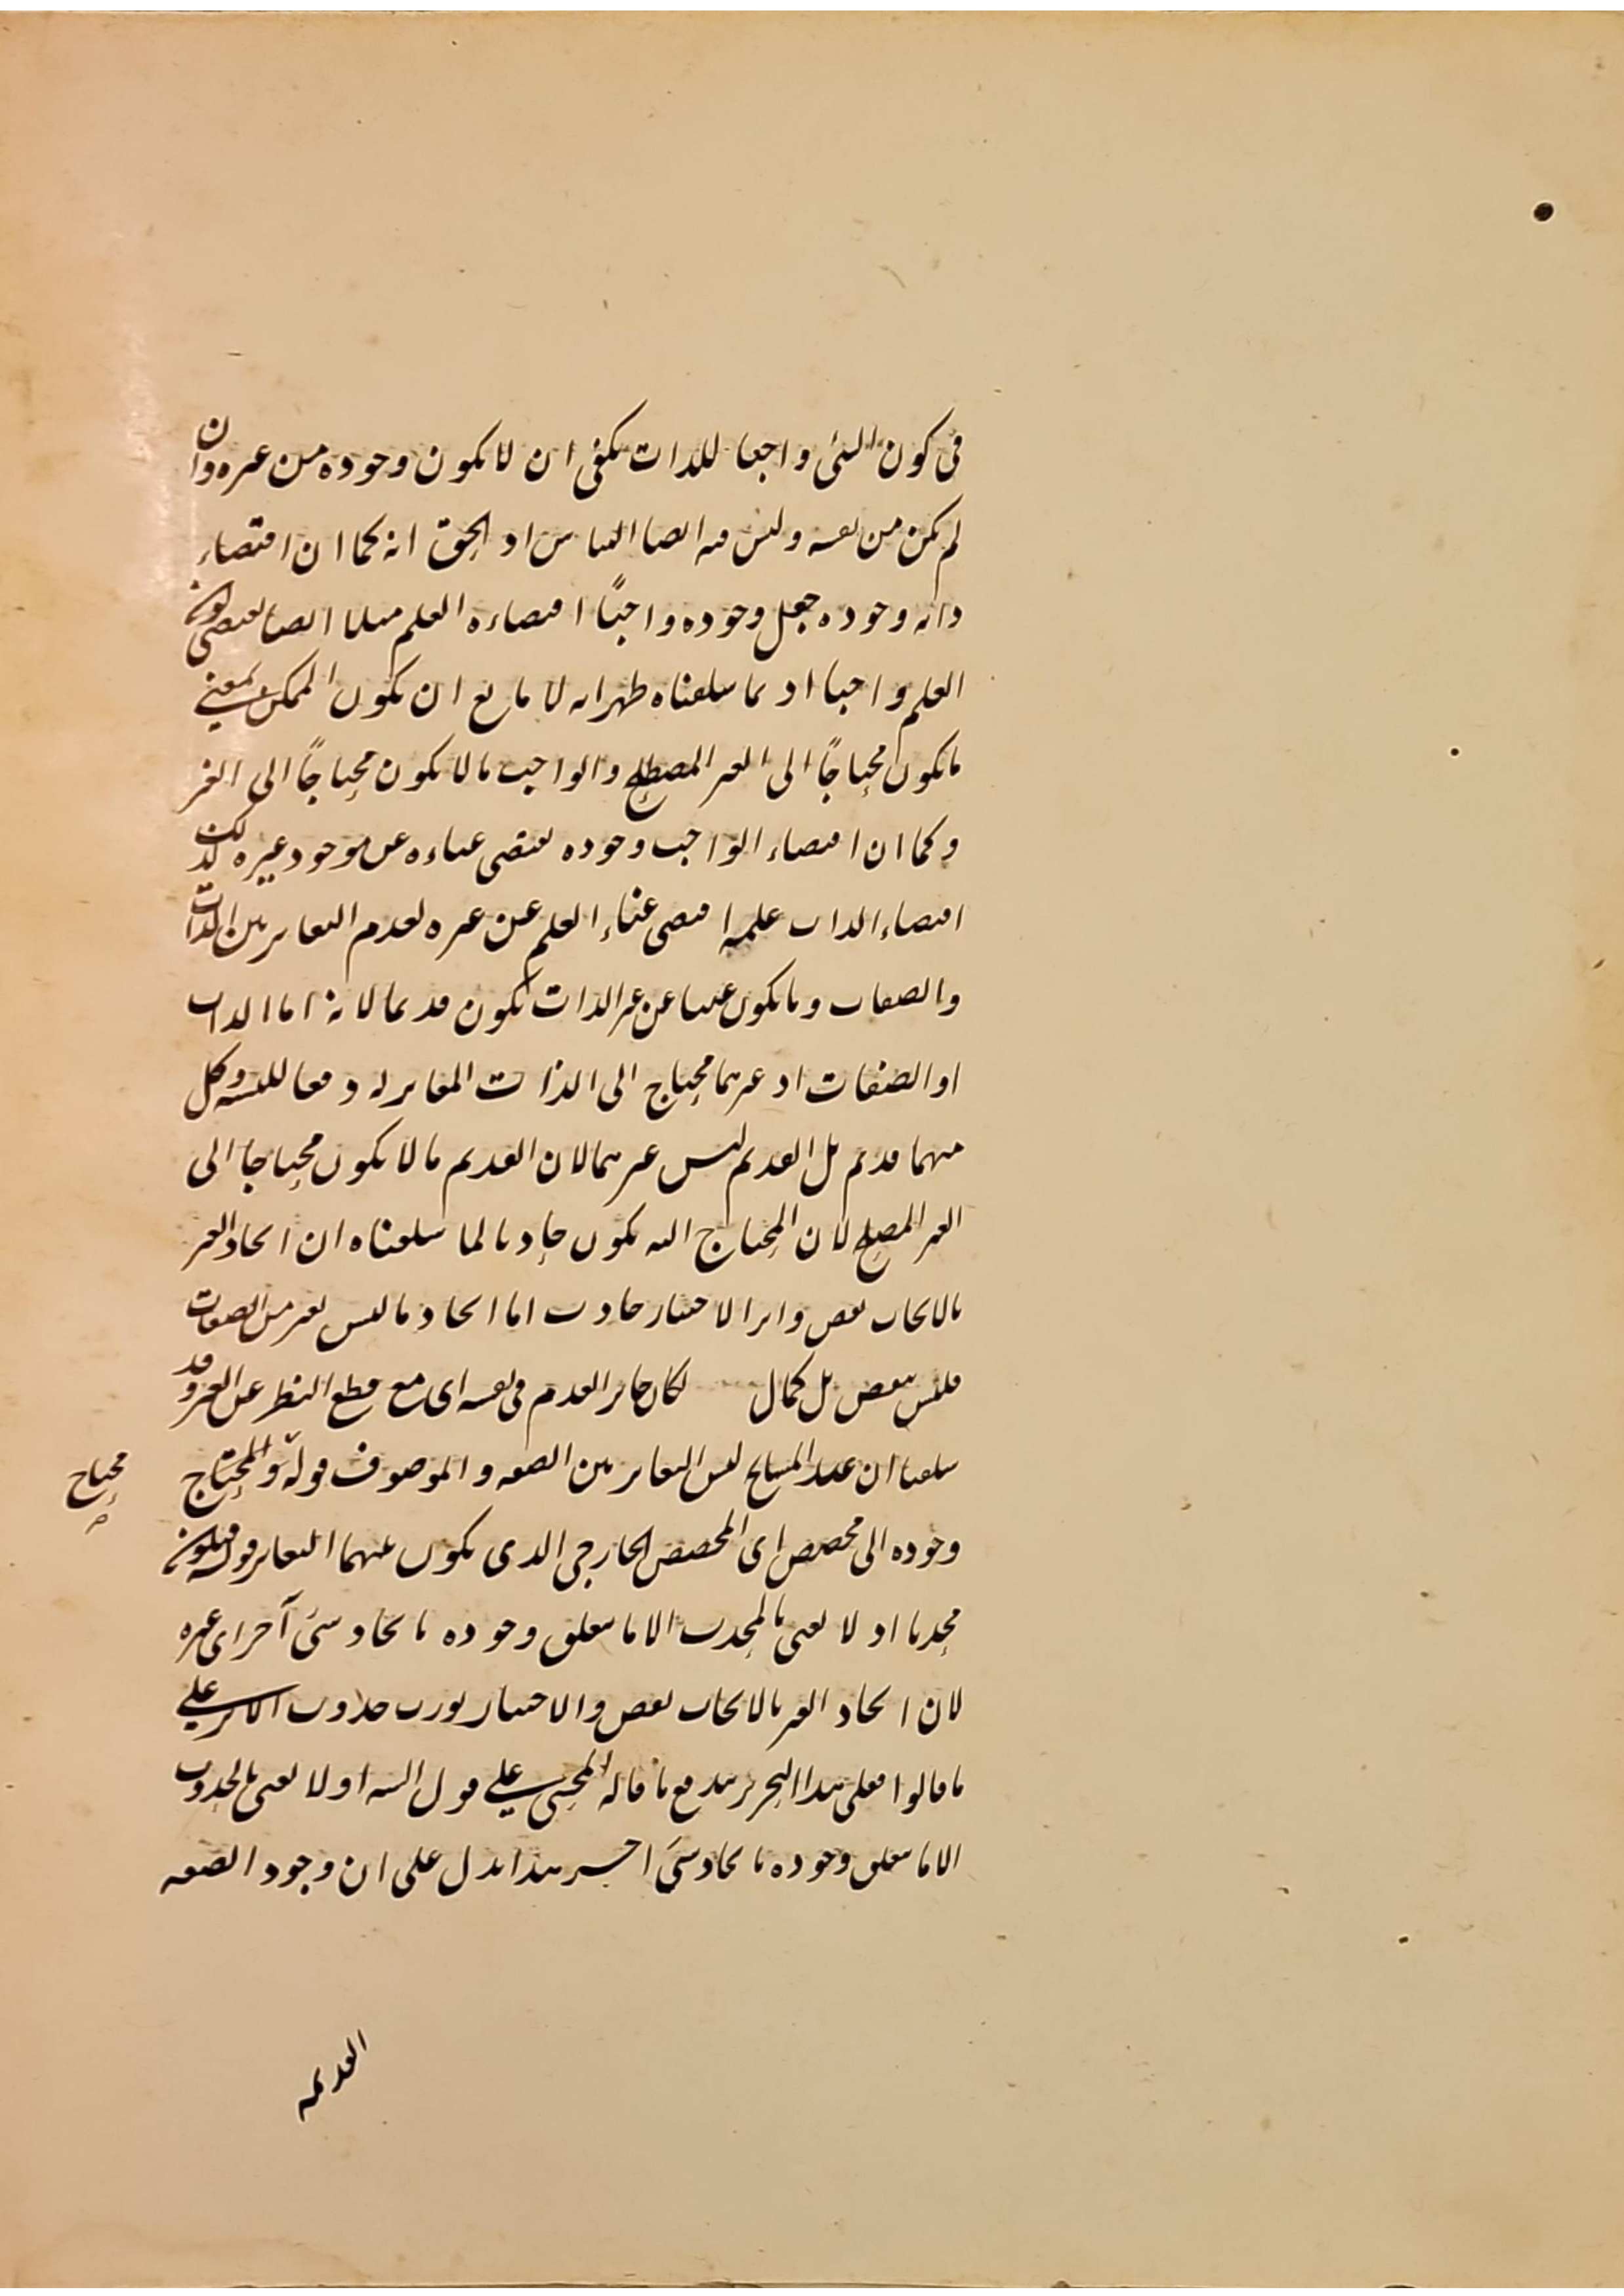 فى كون الشئ واجبا للذات يكفى ان لا يكون وجوده من غيره وان
لم يكن من نفسه وليس فيه ايضا التباس اذ الحق انه كما ان اقتضاء
ذاته وجوده جعل وجوده واجبًا اقتضاءه العلم مثلا ايضا يقتضى كونه
العلم واجبا اذ بما سلفناه ظهر انه لا مانع ان يكون الممكن بمعنى
ما يكون محتاجًا الى الغير المصطلح والواجب ما لا يكون محتاجًا الى الغير
وكما ان اقتضاء الواجب وجوده يقتضى غناءه عن موجود غيره كذلك
اقتضاء الذات علمه اقتضى غناء العلم عن غيره لعدم التغاير بين الذات
والصفات وما يكون غنيا عن غير الذات يكون قديما لانه اما الذات
او الصفات اذ غيرهما محتاج الى الذات المغاير له دفعا للتسلسل وكل
منهما قديم بل القديم ليس غيرهما لان القديم ما لا يكون محتاجا الى
الغير المصطلح لان المحتاج اليه يكون حادثا لما سلفناه ان ايجاد الغير
بالايجاب نقص واثر الاختيار حادث اما ايجاد ما ليس بغير من الصفات
فليس بنقص بل كمال لكان جايز العدم فى نفسه اى مع قطع النظر عن الغير وقد
سلفنا ان عند المشايخ ليس التغاير بين الصفه والموصوف قوله والمحتاج
محتاج
وجوده الى مخصص اى المخصص الخارجى الذى يكون بينهما التغاير قوله فيكون
محدثا اذ لا نعنى بالمحدث الا ما يتعلق وجوده بايجاد شئ آخر اى غيره
لان ايجاد الغير بالايجاب نقص والاختيار يورث حدوث الاثر على
ما قالوا فعلى هذا التحرير يندفع ما قاله المحشى على قول الشه اولا نعنى بالحدوث
الا ما يتعلق وجوده بايجاد شئ اخر هذا يدل على ان وجود الصفه
القديمه